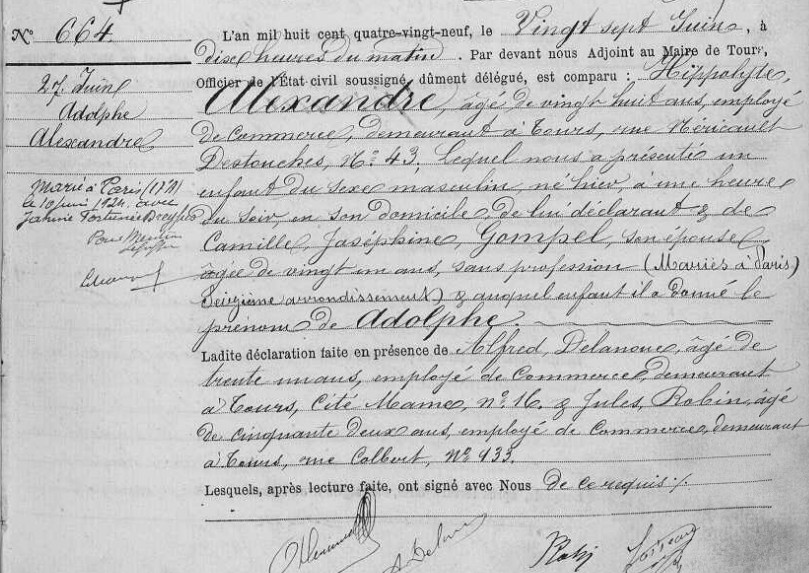 N° 664.
27. Juin
Adolphe
Alexandre
Marié à Paris (17e)
le 10 juin 1924 avec
Fortunée Dreyfus
Pour Mention
L'an mil huit cent quatre-vingt-neuf, le Vingt sept Juin, à
dix heures du matin. Par devant nous Adjoint au Maire de Tours,
Officier de l'État civil soussigné, dûment délégué, est comparu : Hippolyte,
Alexandre, âgé de vingt huit ans, employé
de commerce, demeurant à Tours, rue Néricault
Destouches, N° 43, Lequel nous a présenté un
enfant du sexe masculin, né hier, à une heure
du soir, en son domicile, de lui déclarant & de
Camille, Joséphine, Gompel, son épouse
âgée de vingt un ans, sans profession (Mariés à Paris)
Seizième arrondissement) & auquel enfant il a donné le
prénom de Adolphe.
Ladite déclaration faite en présence de Alfred, Delanoue, âgé de
trente un ans, employé de commerce, demeurant
à Tours, Cité Mame, n° 16. & Jules, Robin, âgé
de cinquante deux ans, employé de commerce, demeurant
à Tours, rue Colbert, N° 933.
Lesquels, après lecture faite, ont signé avec Nous de ce requis ./.